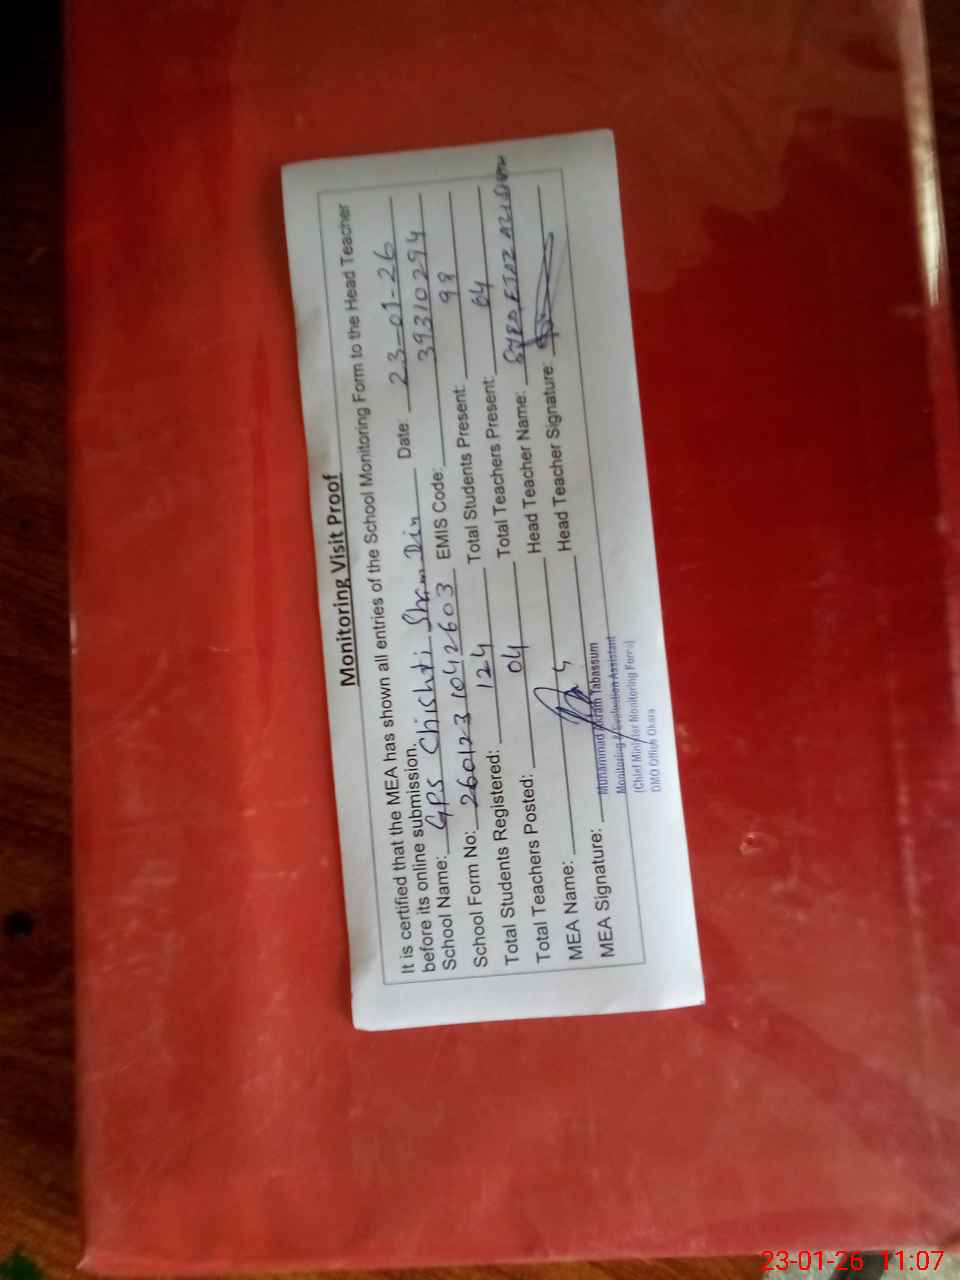 Monitoring Visit Proof
It is certified that the MEA has shown all entries of the School Monitoring Form to the Head Teacher
before its online submission. Date: 23-01-26
School Name: GPS Chishti Sham Din EMIS Code: 39310294
School Form No: 2601231042603 Total Students Present: 98
Total Students Registered: 124 Total Teachers Present: 04
Total Teachers Posted: 04 Head Teacher Name: SYED
MEA Name: Head Teacher Signature:
MEA Signature:
Muhammad Akram Tabassum
Monitoring & Evaluation Assistant
(Chief Minister Monitoring Force)
DMO Office Okara
23-01-26 11:07